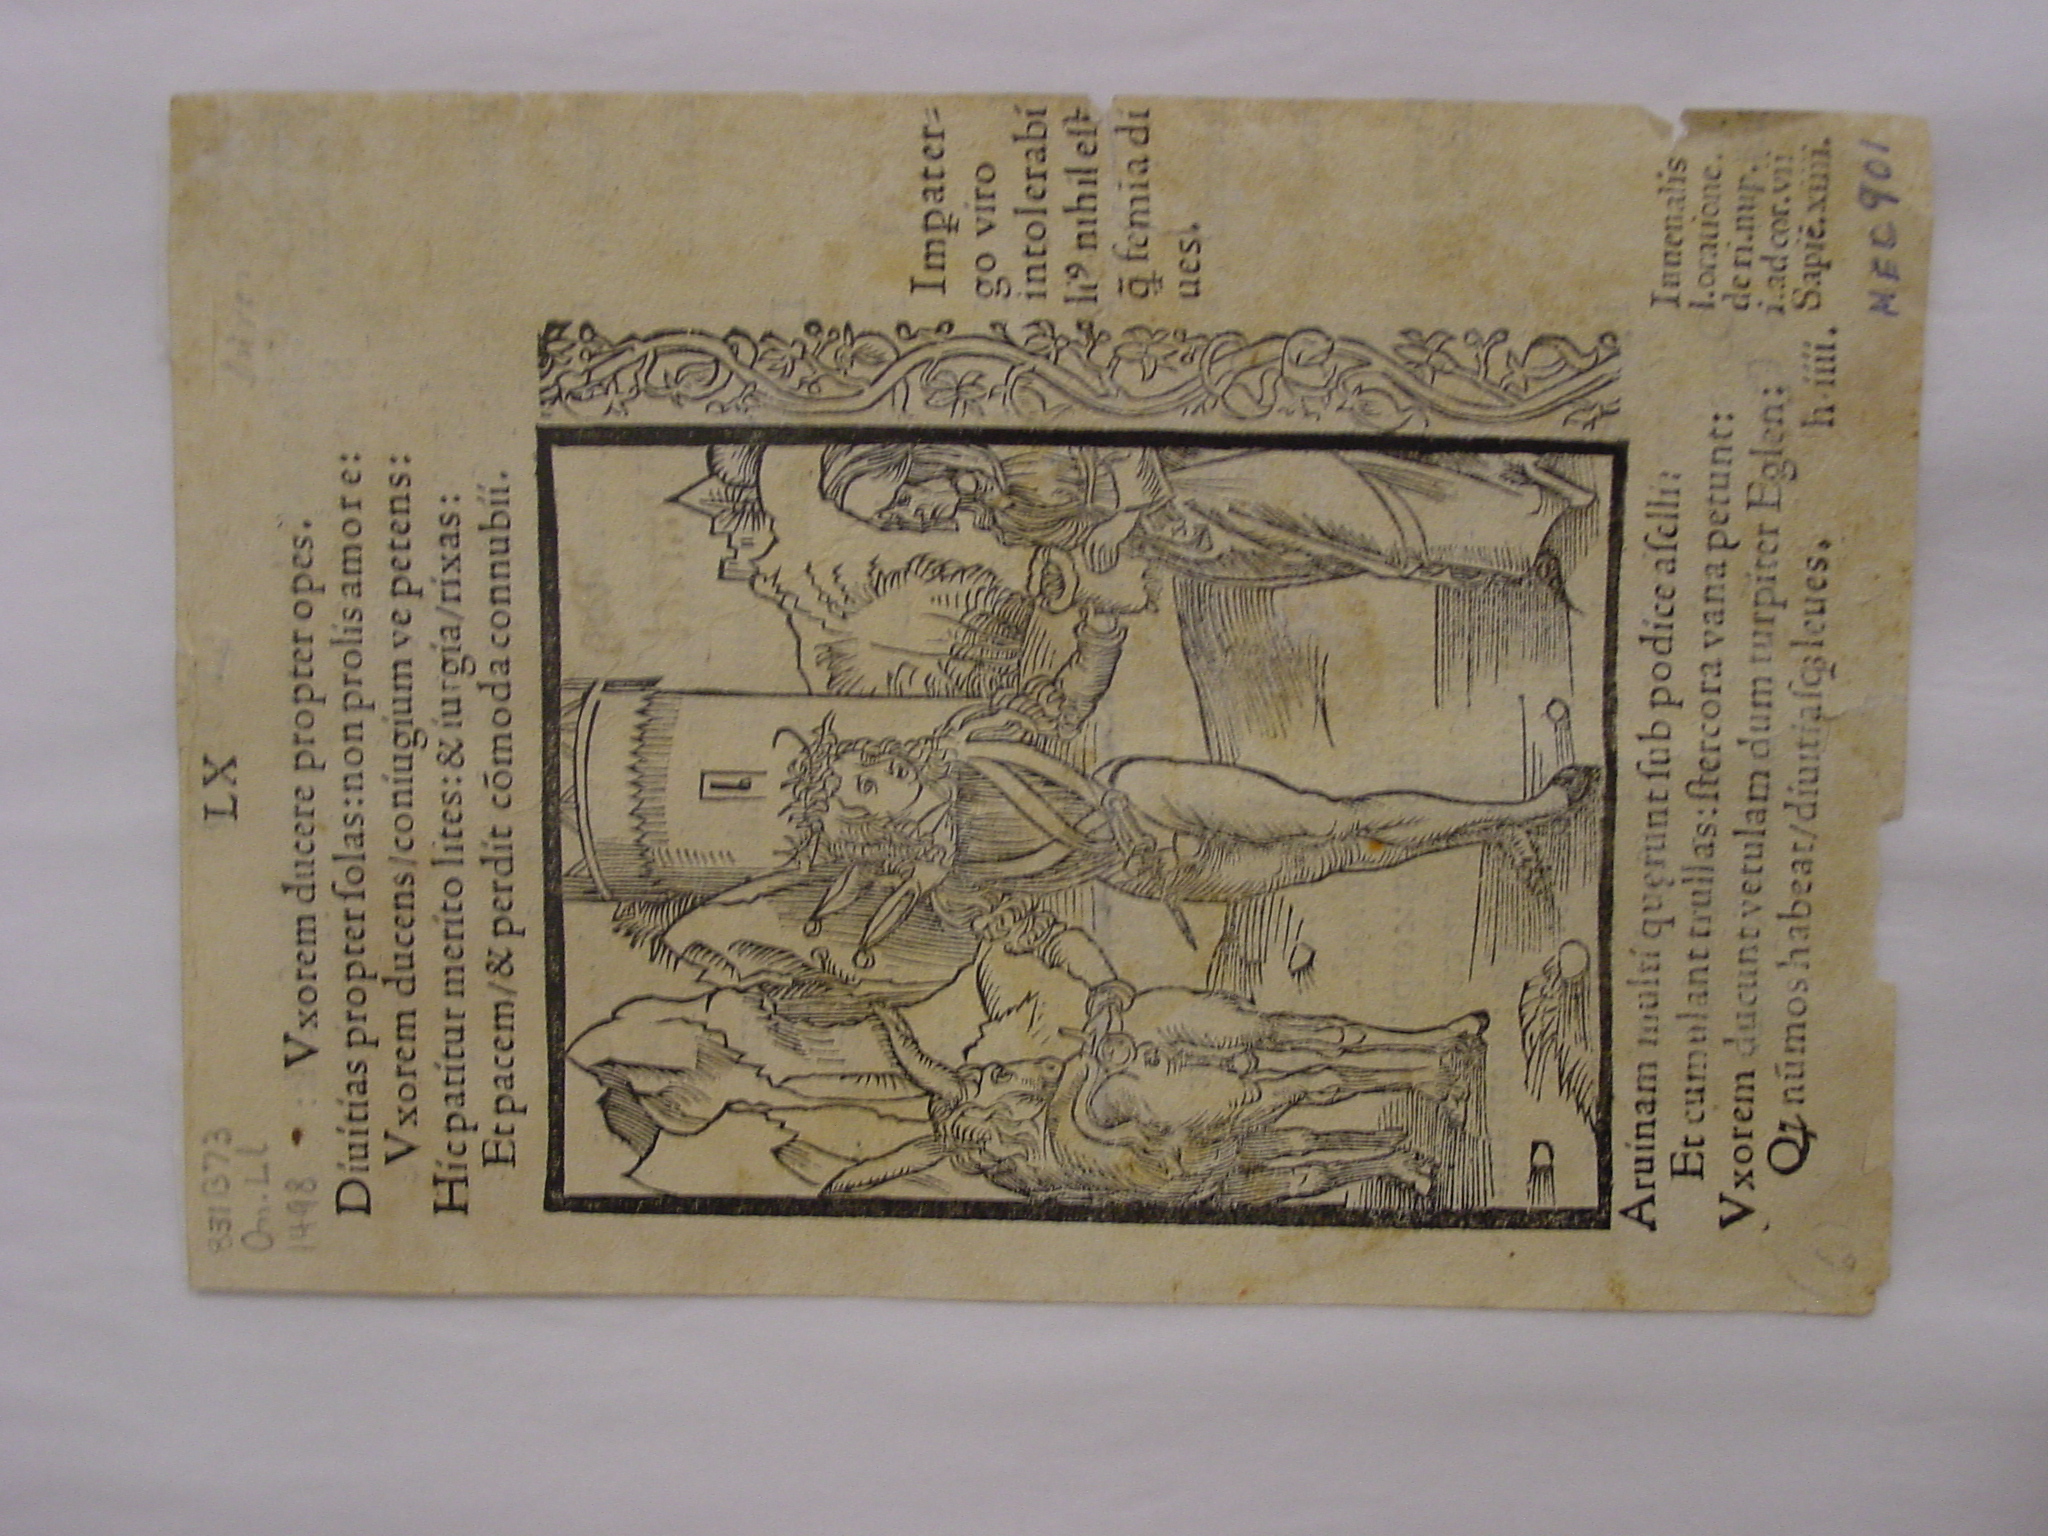 LX
831B73
1498
Vxorem ducere propter opes.
Diuitias propter ſolas: non prolis amore:
Vxorem ducens/coniugium ve petens:
Hic patitur merito lites: & iurgia/rixas:
Et pacem/& perdit cōmoda connubii.
Impater⸗
go viro
intolerabi
liꝰ nihil est
q̄ femīa di
ues.
Aruinam multi quęrunt ſub podice aſelli:
Et cumulant trullas: ſtercora vana petunt:
Vxorem ducunt vetulam dum turpiter Eglen:
Qꝫ nūmos habeat/diuitiaſqꝫ leues.
Iuuenalis
de ri. nup.
i. ad cor. vii
Sapiē. xiiii.
h iiii.
MEC 901